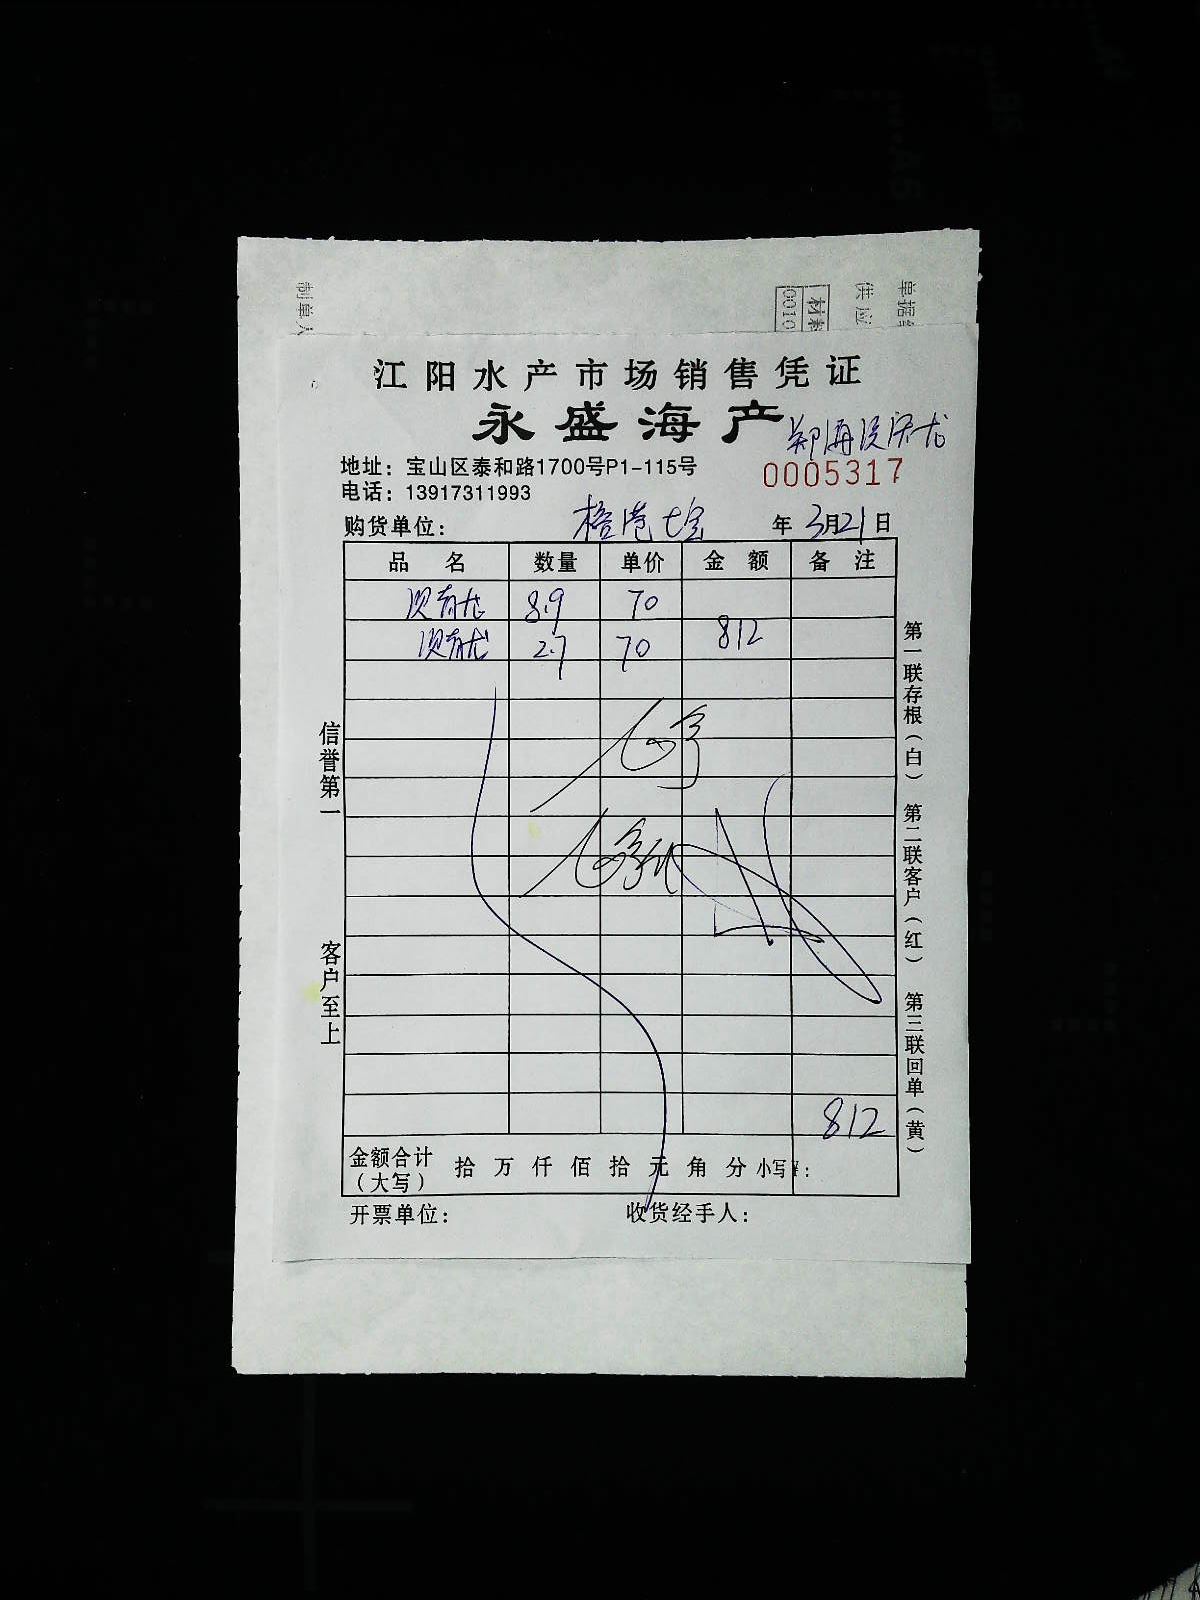 制单人
材料
0010
供应
单据
江阳水产市场销售凭证
永盛海产
地址：宝山区泰和路1700号P1-115号
0005317
电话：13917311993
购货单位： 年 3月21日
品 名 数量 单价 金 额 备 注
8.9 70
2.7 70 812
信誉第一
客户至上
第一联存根（白） 第二联客户（红） 第三联回单（黄）
812
金额合计（大写） 拾 万 仟 佰 拾 元 角 分 小写¥：
开票单位： 收货经手人：